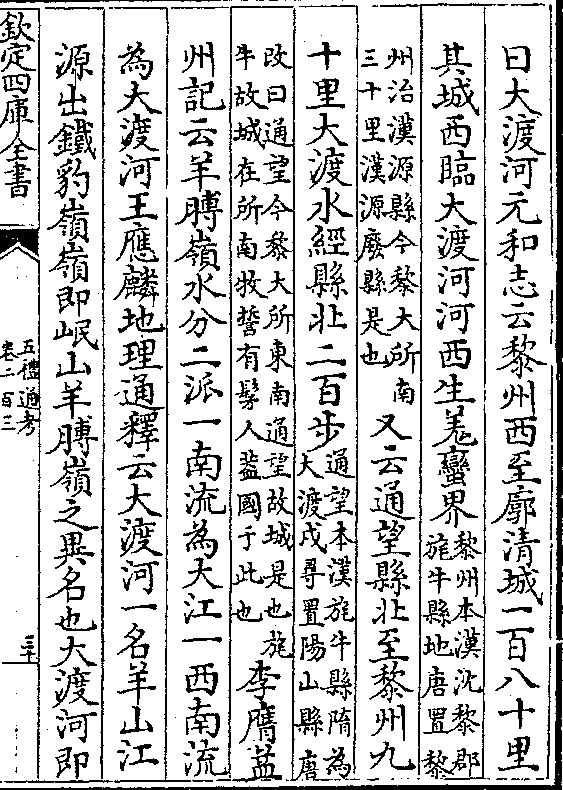 曰大渡河元和志云黎州西至廓清城一百八十里
其城西臨大渡河河西生羗蠻界黎州本漢沈黎郡旄牛縣地唐置黎
州治漢源縣今黎大所南三十里漢源廢縣是也又云通望縣北至黎州九
十里大渡水經縣北二百步通望本漢旄牛縣隋為大渡戍尋置陽山縣唐
改曰通望今黎大所東南通望故城是也旄牛故城在所南牧誓有髳人葢國于此也李膺益
州記云羊膊嶺水分二派一南流為大江一西南流
為大渡河王應麟地理通釋云大渡河一名羊山江
源出鐵豹嶺嶺即岷山羊膊嶺之異名也大渡河即
欽定四庫全書
五禮通考
卷二百三
三十